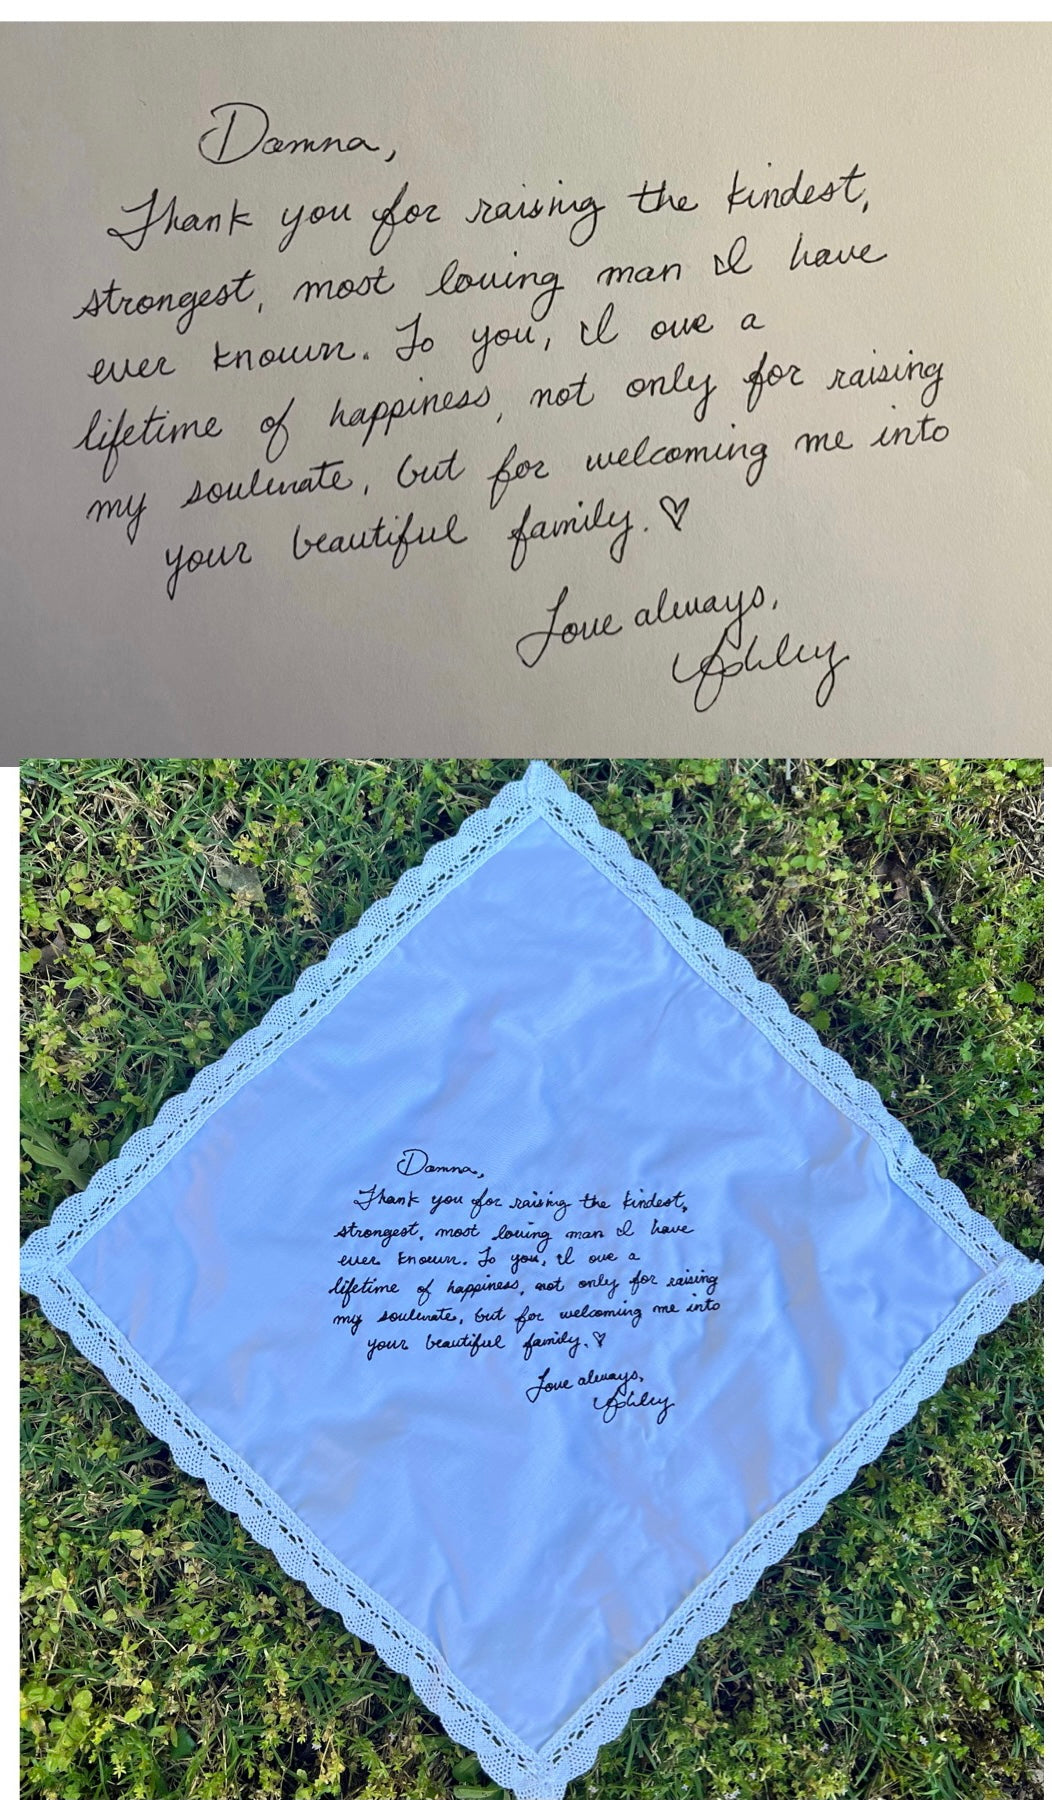 Damna,
Thank you for raising the kindest,
strongest, most loving man I have
ever known. To you, I owe a
lifetime of happiness, not only for raising
my soulmate, but for welcoming me into
your beautiful family. ♡
Love always,
Ashley
Damna,
Thank you for raising the kindest,
strongest, most loving man I have
ever known. To you, I owe a
lifetime of happiness, not only for raising
my soulmate, but for welcoming me into
your beautiful family. ♡
Love always,
Ashley